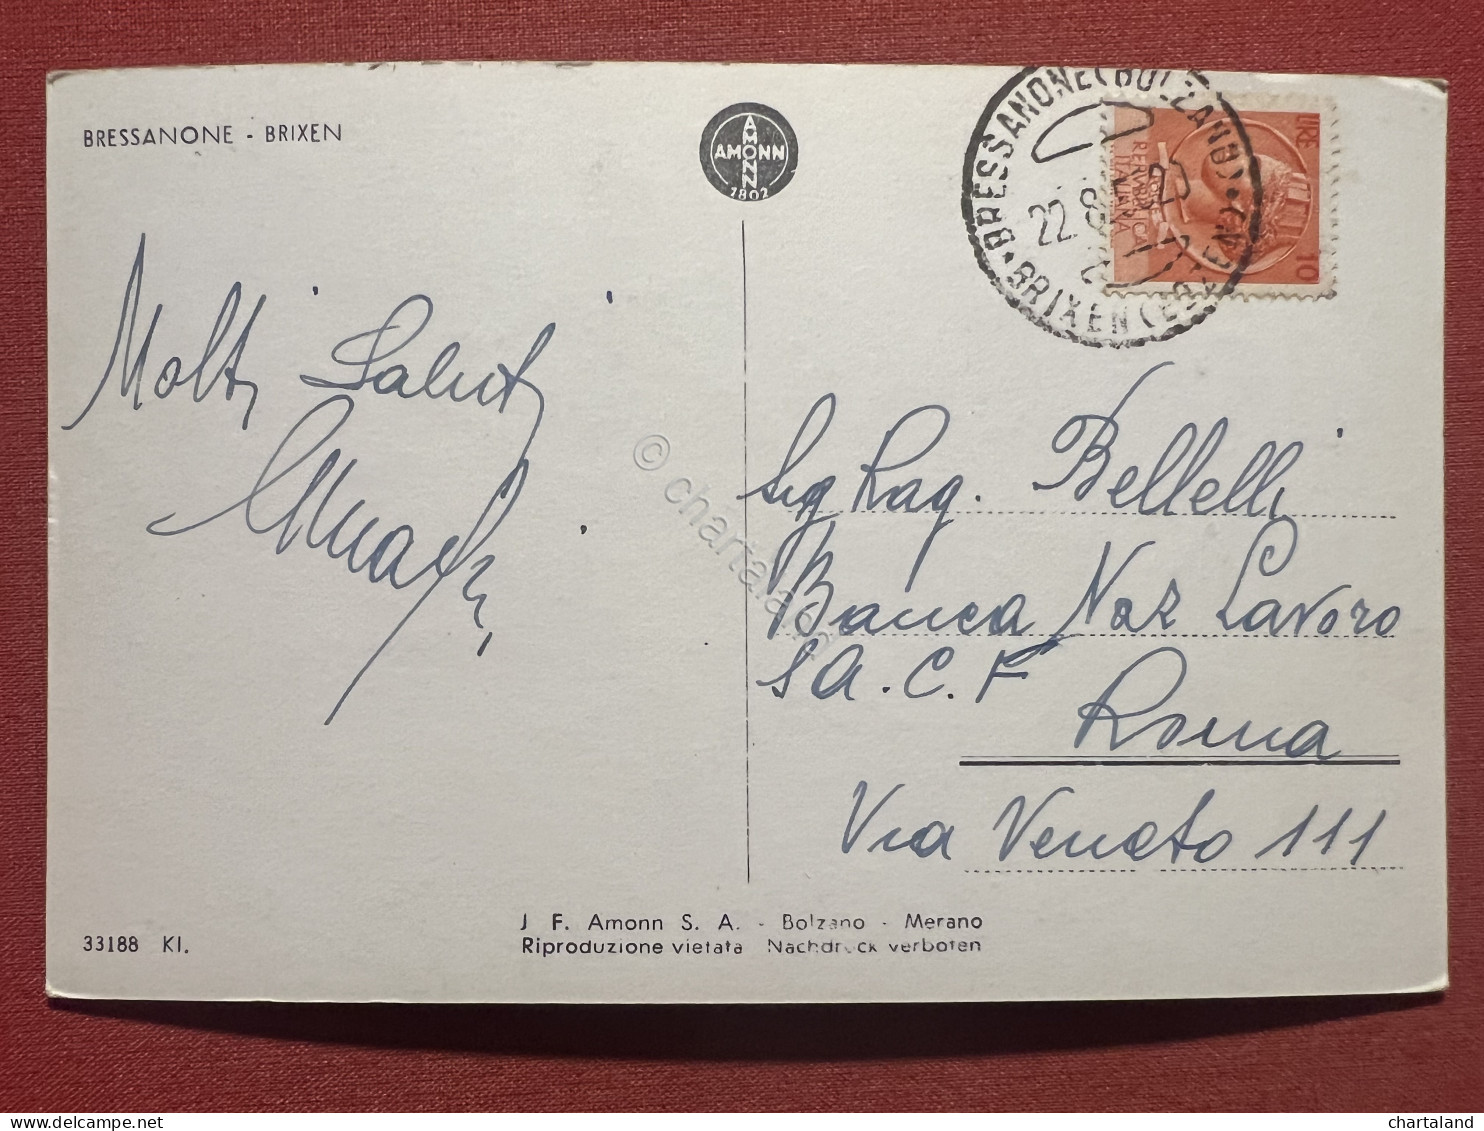 BRESSANONE - BRIXEN
AMONN
AMONN
1802
BRESSANONE (BOLZANO)
22.8.
BRIXEN (BOZEN)
LIRE
REPVBBLICA
ITALIANA
10
Molti Saluti
Sig Rag. Bellelli
Banca Naz Lavoro
S A. C. F
Roma
Via Veneto 111
33188 KI.
J F. Amonn S. A. - Bolzano - Merano
Riproduzione vietata Nachdruck verboten
© chartaland
chartaland